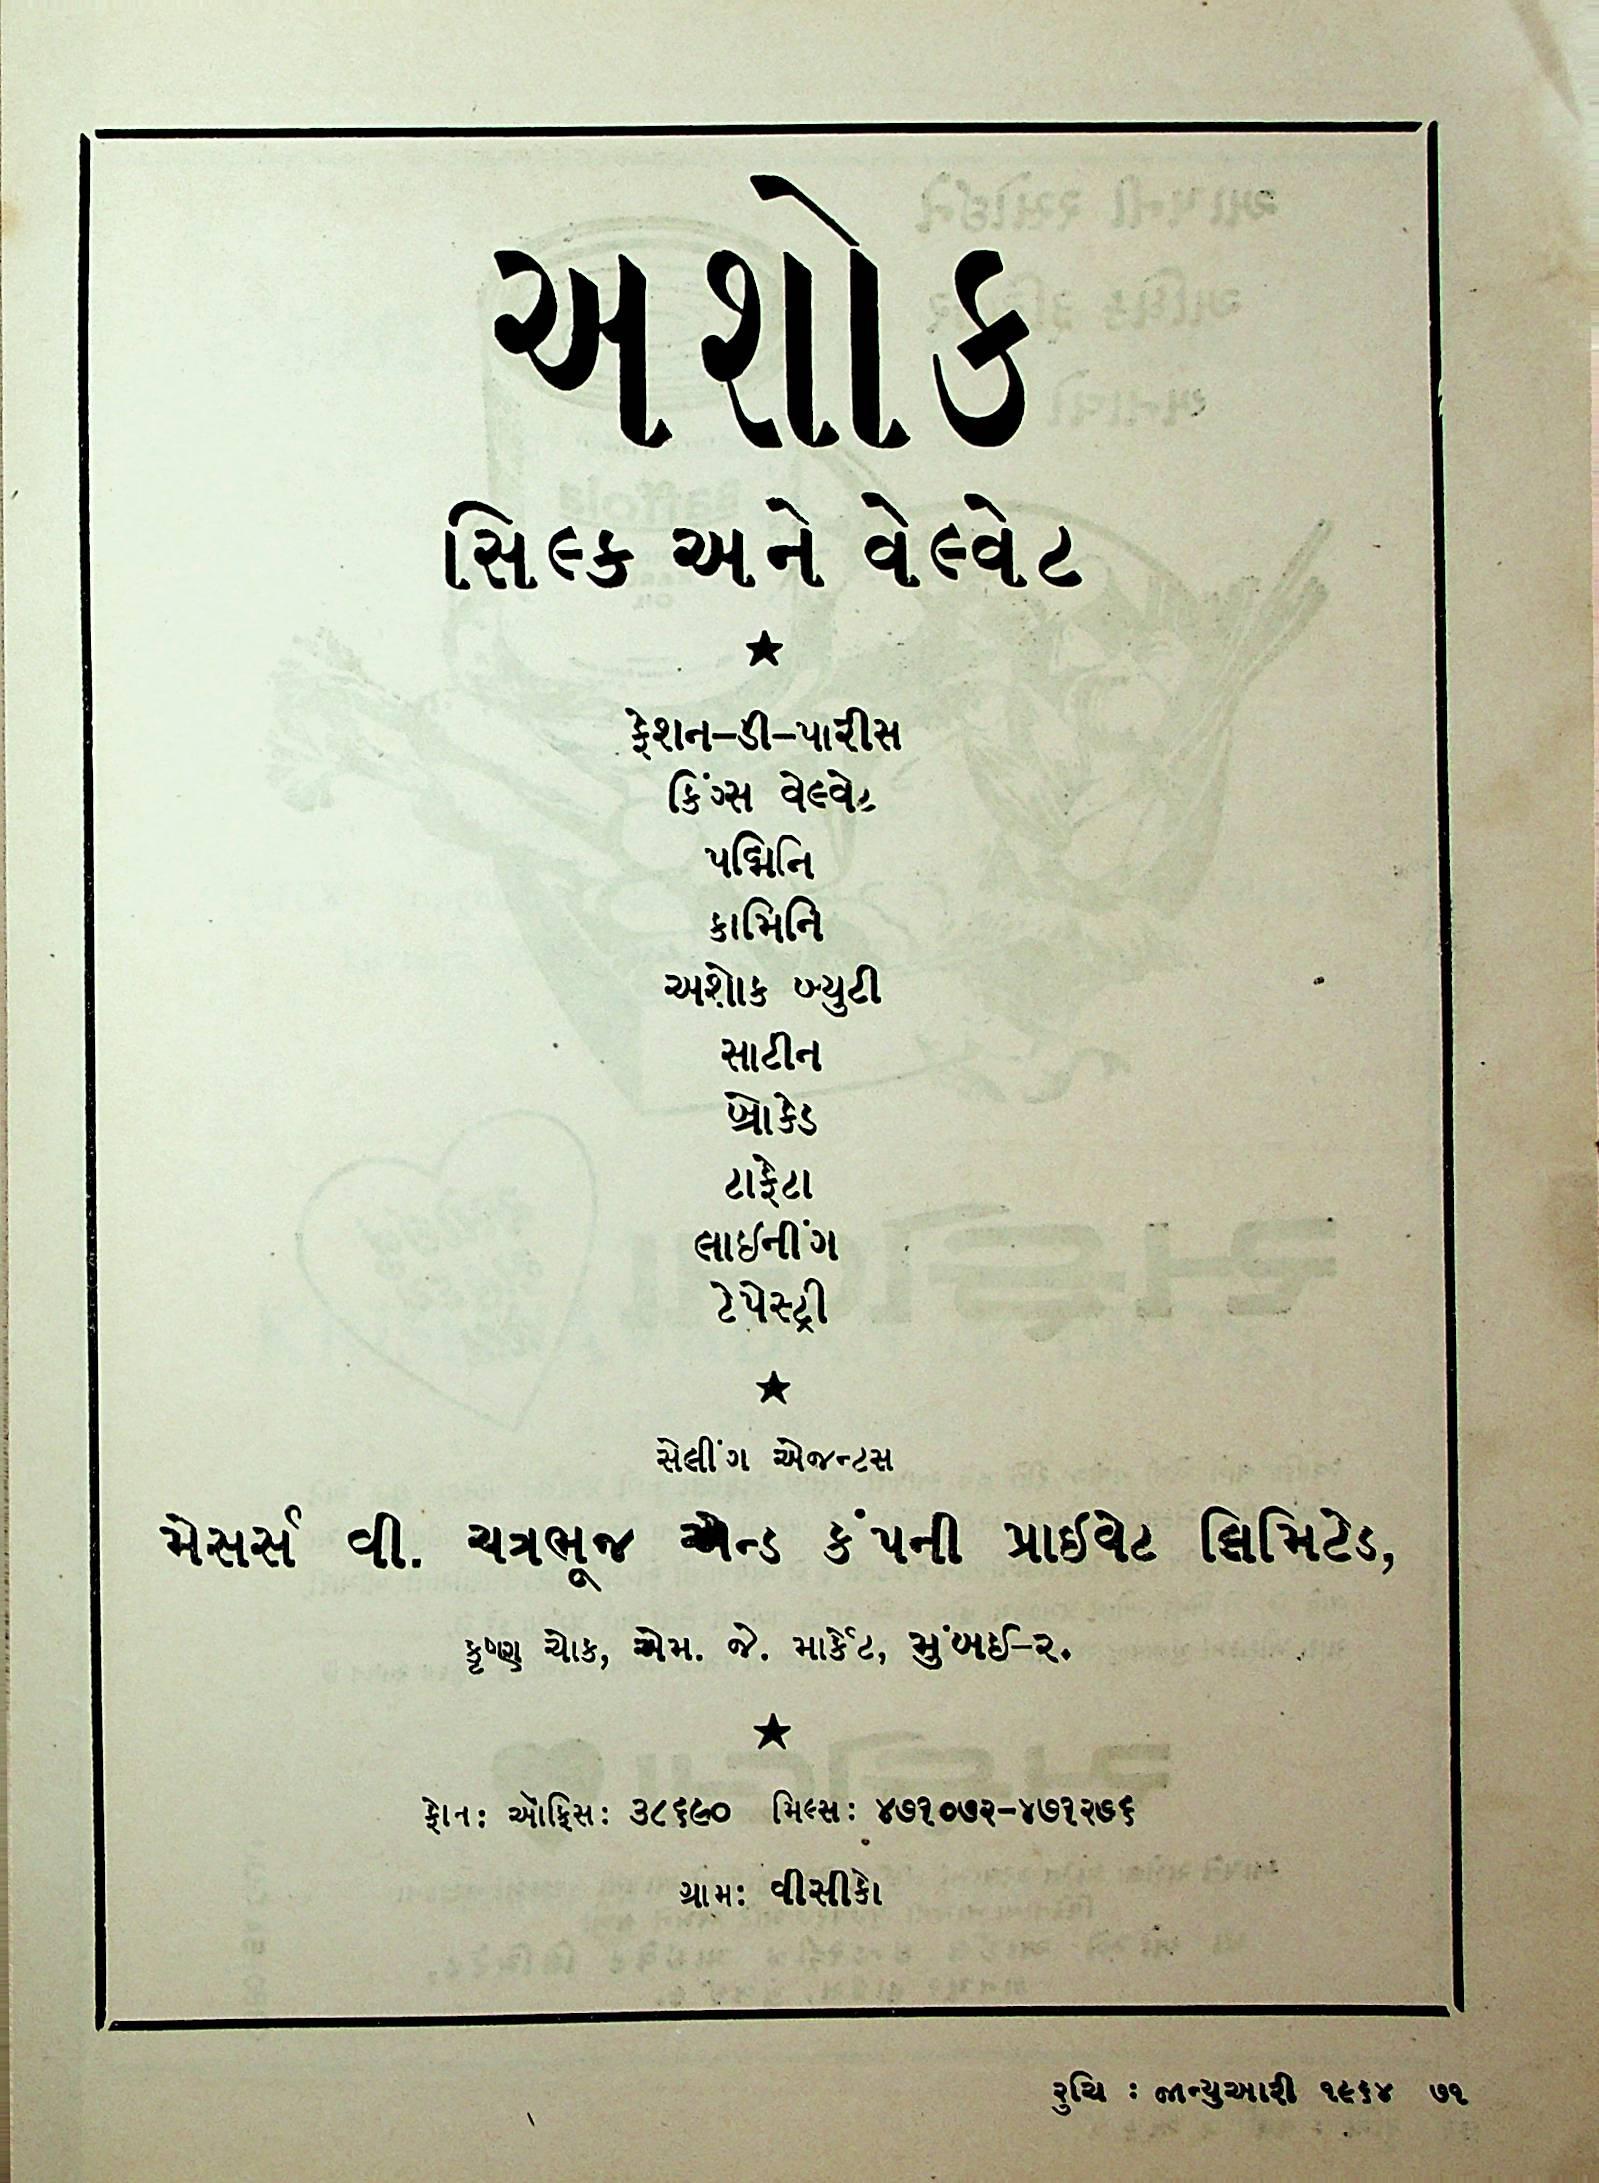 અશોક
સિલ્ક અને વેલ્વેટ
★
ફેશન–ડી–પારીસ
કિંગ્સ વેલ્વેટ
પદ્મિનિ
કામિનિ
અશોક બ્યુટી
સાટીન
બ્રોકેડ
ટાફેટા
લાઇનીંગ
ટેપેસ્ટ્રી
★
સેલીંગ એજન્ટસ
મેસર્સ વી. ચત્રભૂજ એન્ડ કંપની પ્રાઇવેટ લિમિટેડ,
કૃષ્ણ ચોક, એમ. જે. માર્કેટ, મુંબઈ–૨.
★
ફોન: ઑફિસ: ૩૮૬૯૦ મિલ્સ: ૪૭૧૦૭૨–૪૭૧૨૭૬
ગ્રામ: વીસીકો
રુચિ : જાન્યુઆરી ૧૯૬૪ ૭૧